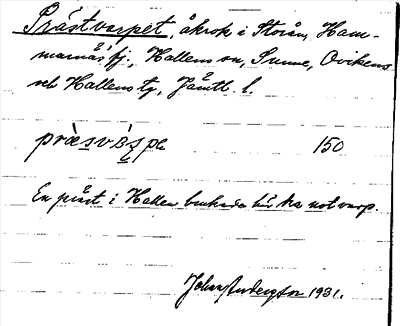 Prästvarpet, åkrok i Storån, Ham-
marnäsfj., Hallens sn, Sunne, Ovikens
och Hallens tg, Jämtl. l.
præ̀svàṣpe 150
En präst i Hallen brukade här ha notvarp.
Johan Anderson 1931.